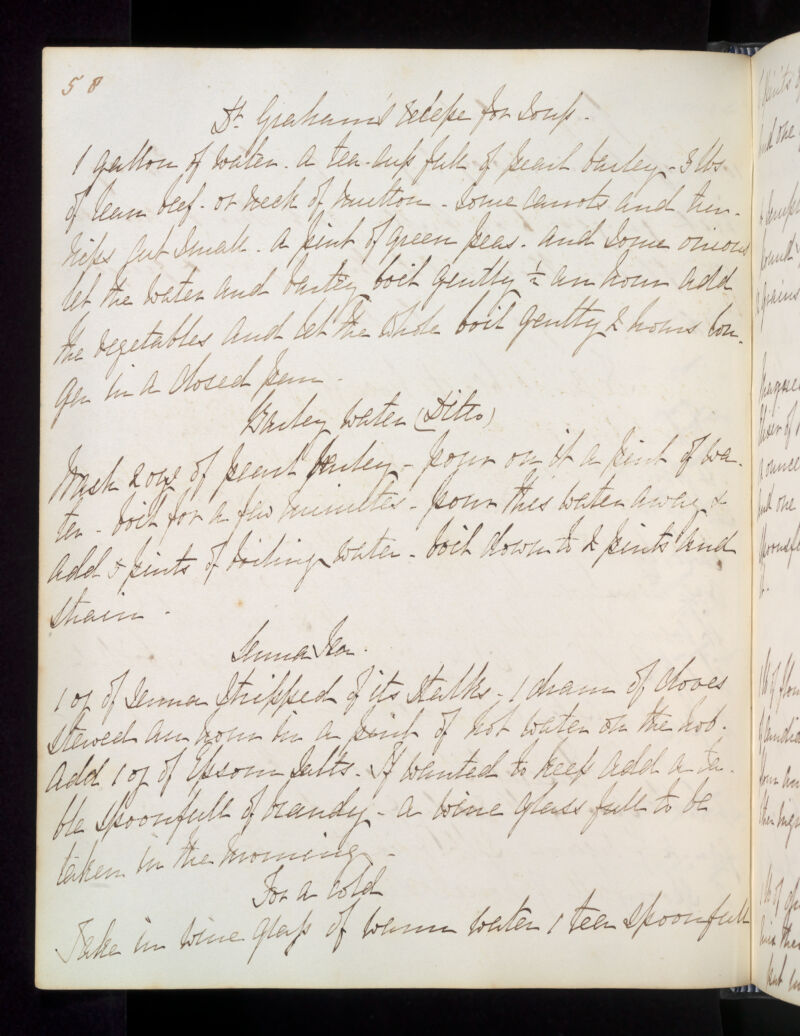 58
Dr. Graham's recipe for Soup.
1 gallon of water. a tea-cup full of pearl barley - 3 lbs
of lean beef. or neck of mutton - some carrots and tur-
nips cut small. a pint of green peas. and some onions
let the water and barley boil gently ½ an hour add
the vegetables and let the whole boil gently 2 hours lon-
ger in a closed pan.
Barley water (Ditto)
Wash 2 ozs of pearl barley - pour on it a pint of wa-
ter. boil for a few minutes - pour this water away &
add pints of boiling water - boil down to 2 pints and
strain.
Senna Tea.
1 oz of Senna stripped of its stalks - 1 dram of cloves
stewed an hour in a pint of hot water on the hob.
add 1 oz of Epsom salts. If wanted to keep add a ta-
ble spoonfull of brandy - a wine glass full to be
taken in the morning -
For a cold
Take in wine glass of warm water 1 tea spoonfull